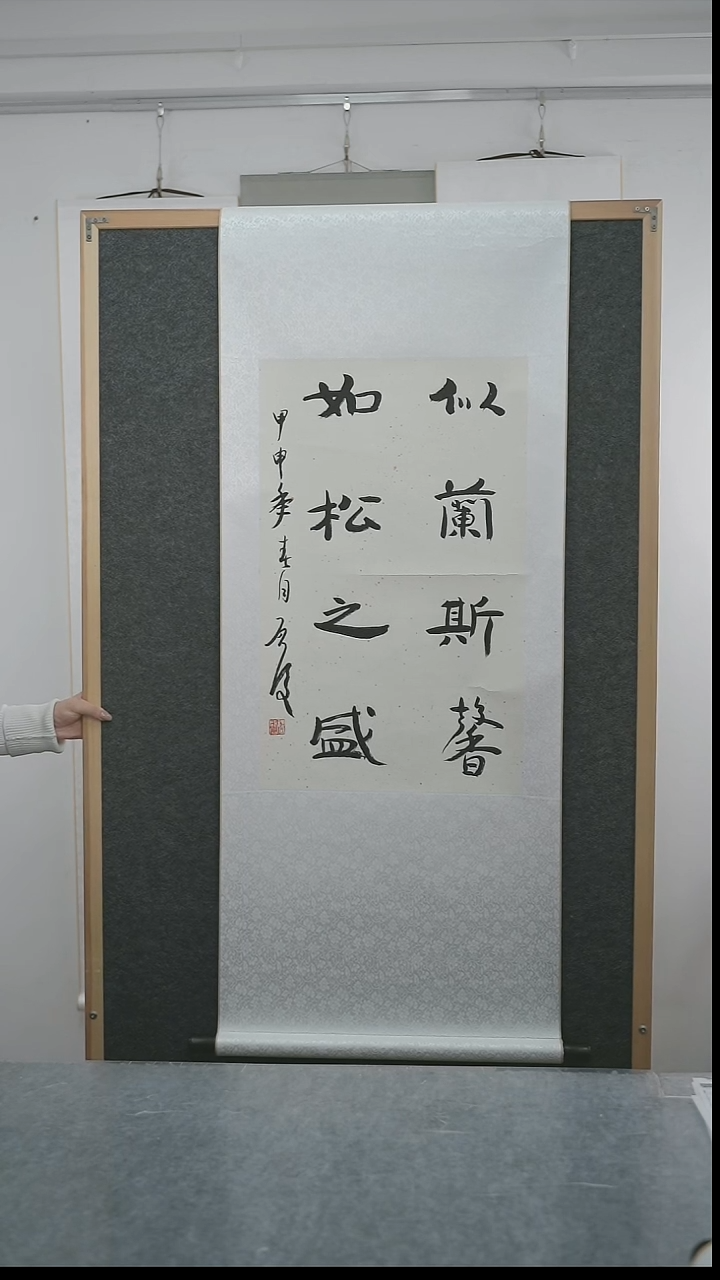 似蘭斯馨
如松之盛
甲申年春月